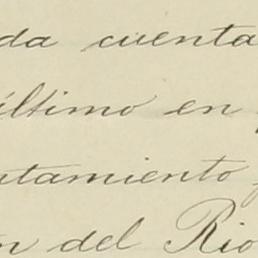 da cuenta
último en
tamiento
n del Rio